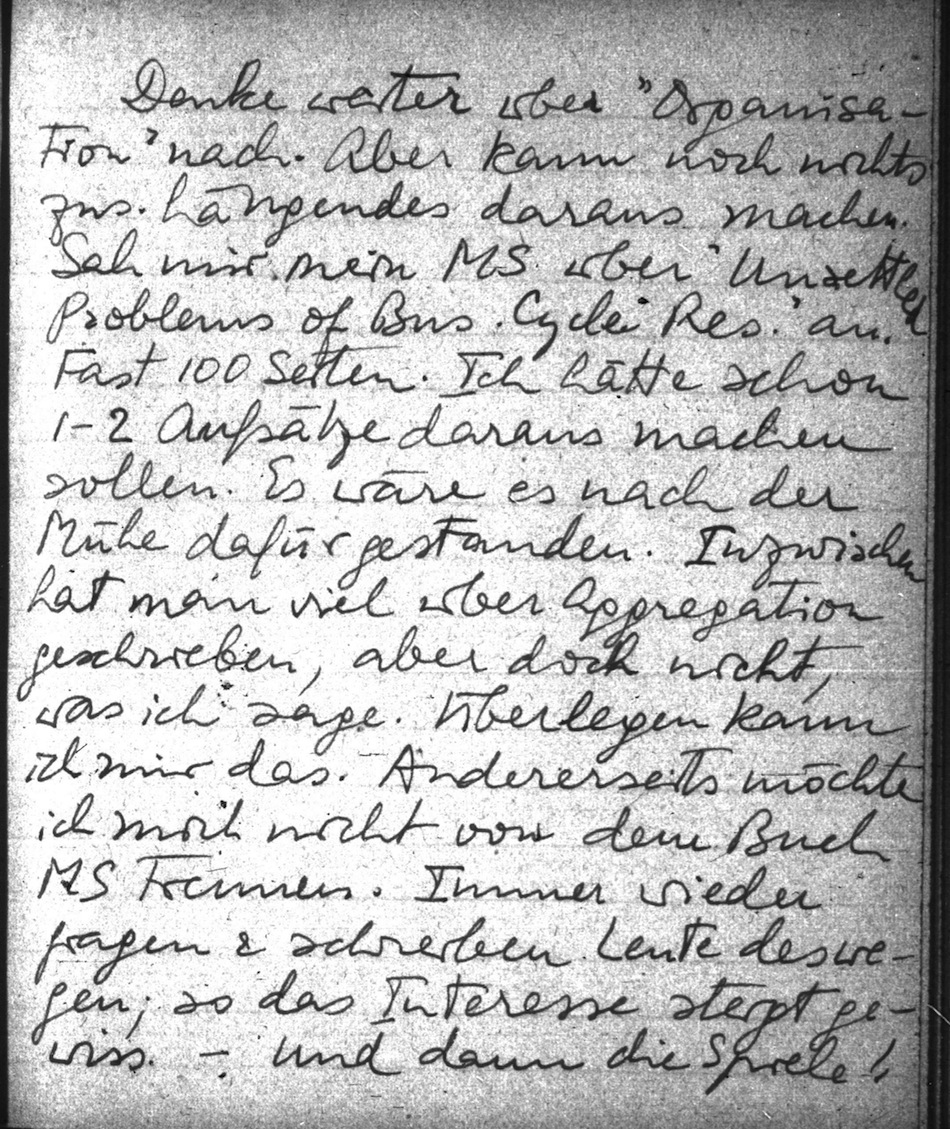 Denke weiter über "Organisa-
tion" nach. Aber kann noch nichts
zus. hängendes daraus machen.
Seh mir mein MS über "Unsettled
Problems of Bus. Cycle Res." an.
Fast 100 Seiten. Ich hätte schon
1-2 Aufsätze daraus machen
sollen. Es wäre es nach der
Mühe dafür gestanden. Inzwischen
hat man viel über Aggregation
geschrieben, aber doch nicht,
was ich sage. Überlegen kann
ich mir das. Andererseits möchte
ich mich nicht von dem Buch
MS trennen. Immer wieder
fragen & schreiben Leute deswe-
gen; so das Interesse steigt ge-
wiss. – Und dann die Spiele!